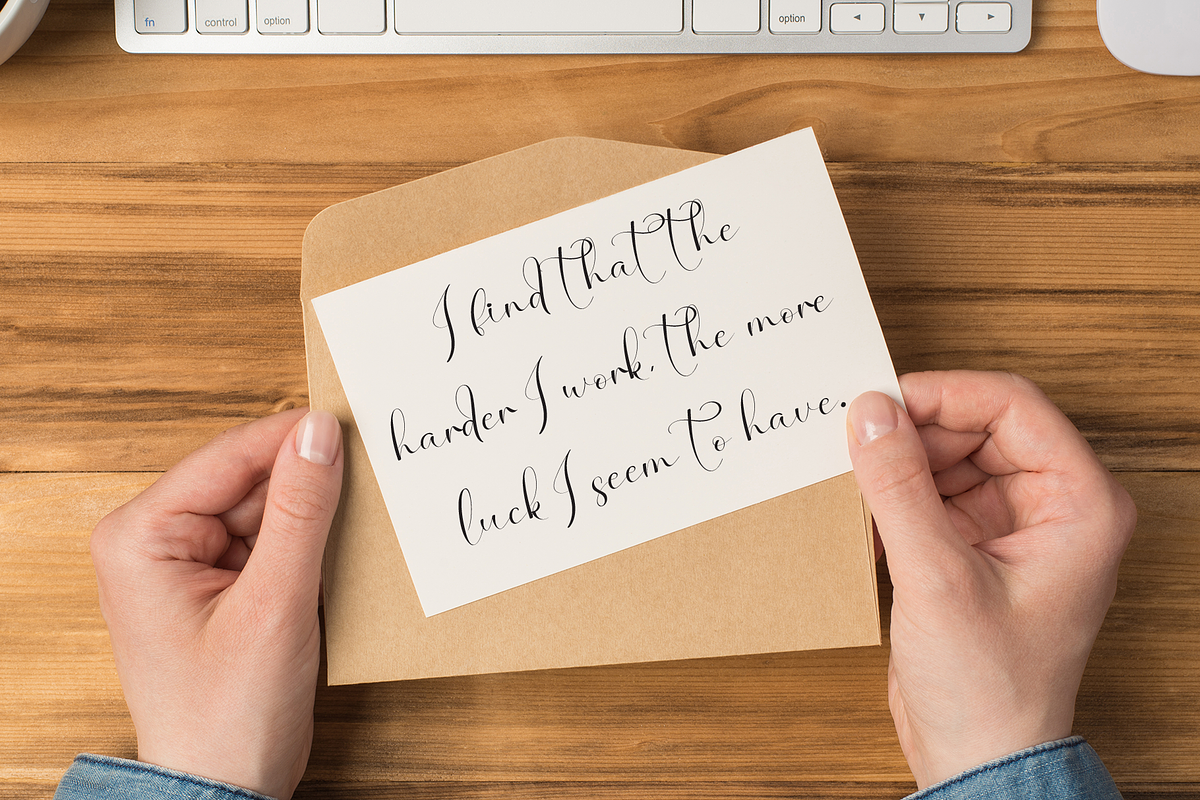 fn control option option ◄ ▼ ►
I find that the
harder I work, the more
luck I seem to have.